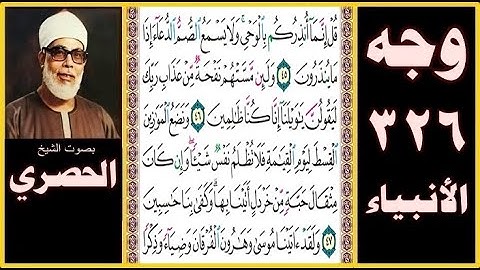 قُلْ إِنَّمَآ أُنذِرُكُم بِالْوَحْىِ وَلَا يَسْمَعُ الصُّمُّ الدُّعَآءَ إِذَا
مَا يُنذَرُونَ ٤٥ وَلَئِن مَّسَّتْهُمْ نَفْحَةٌ مِّنْ عَذَابِ رَبِّكَ
لَيَقُولُنَّ يَٰوَيْلَنَآ إِنَّا كُنَّا ظَٰلِمِينَ ٤٦ وَنَضَعُ الْمَوَٰزِينَ
الْقِسْطَ لِيَوْمِ الْقِيَٰمَةِ فَلَا تُظْلَمُ نَفْسٌ شَيْـًٔا وَإِن كَانَ
مِثْقَالَ حَبَّةٍ مِّنْ خَرْدَلٍ أَتَيْنَا بِهَا وَكَفَىٰ بِنَا حَٰسِبِينَ
٤٧ وَلَقَدْ ءَاتَيْنَا مُوسَىٰ وَهَٰرُونَ الْفُرْقَانَ وَضِيَآءً وَذِكْرًا
وجه
٣٢٦
الأنبياء
بصوت الشيخ
الحصري